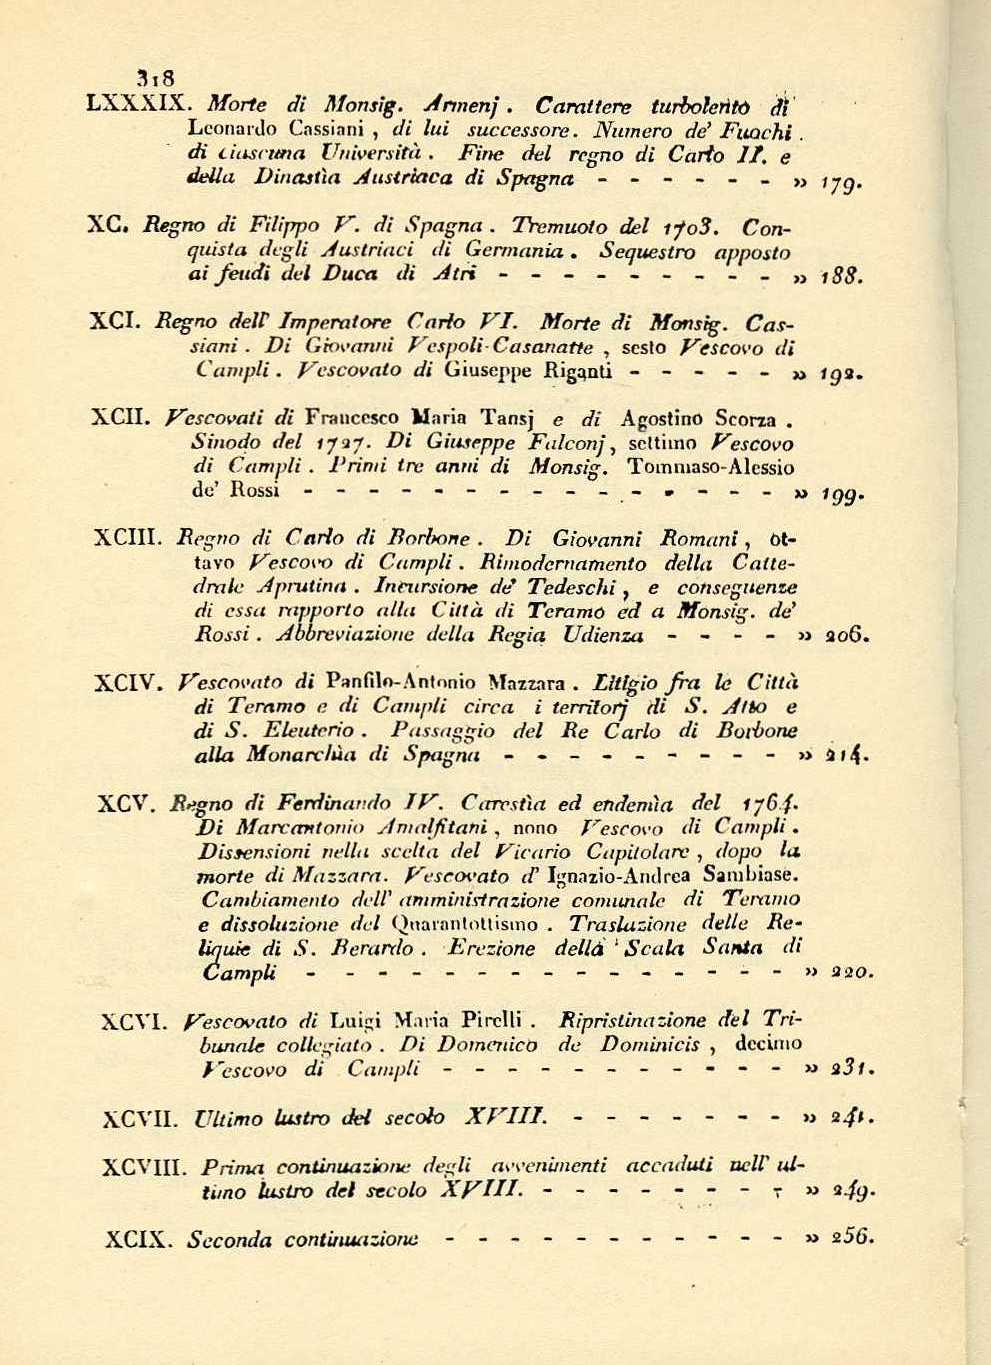 318
LXXXIX. Morte di Monsig. Armenj . Carattere turbolento di
Leonardo Cassiani , di lui successore. Numero de' Fuochi .
di ciascuna Università . Fine del regno di Carlo II. e
della Dinastìa Austriaca di Spagna - - - - - - » 179.
XC. Regno di Filippo V. di Spagna . Tremuoto del 1703. Con-
quista degli Austriaci di Germania . Sequestro apposto
ai feudi del Duca di Atri - - - - - - - - - » 188.
XCI. Regno dell' Imperatore Carlo VI. Morte di Monsig. Cas-
siani . Di Giovanni Vespoli-Casanatte , sesto Vescovo di
Campli . Vescovato di Giuseppe Riganti - - - - - » 192.
XCII. Vescovati di Francesco Maria Tansj e di Agostino Scorza .
Sinodo del 1727. Di Giuseppe Falconj , settimo Vescovo
di Campli . Primi tre anni di Monsig. Tommaso-Alessio
de' Rossi - - - - - - - - - - - - - - - » 199.
XCIII. Regno di Carlo di Borbone . Di Giovanni Romani , ot-
tavo Vescovo di Campli . Rimodernamento della Catte-
drale Aprutina . Incursione de' Tedeschi , e conseguenze
di essa rapporto alla Città di Teramo ed a Monsig. de'
Rossi . Abbreviazione della Regia Udienza - - - - » 206.
XCIV. Vescovato di Panfilo-Antonio Mazzara . Litigio fra le Città
di Teramo e di Campli circa i territorj di S. Atto e
di S. Eleuterio . Passaggio del Re Carlo di Borbone
alla Monarchìa di Spagna - - - - - - - - - » 214.
XCV. Regno di Ferdinando IV. Carestìa ed endemìa del 1764.
Di Marcantonio Amalfitani , nono Vescovo di Campli .
Dissensioni nella scelta del Vicario Capitolare , dopo la
morte di Mazzara. Vescovato d' Ignazio-Andrea Sambiase.
Cambiamento dell' amministrazione comunale di Teramo
e dissoluzione del Quarantottismo . Traslazione delle Re-
liquie di S. Berardo . Erezione della Scala Santa di
Campli - - - - - - - - - - - - - - - » 220.
XCVI. Vescovato di Luigi Maria Pirelli . Ripristinazione del Tri-
bunale collegiato . Di Domenico de Dominicis , decimo
Vescovo di Campli - - - - - - - - - - - » 231.
XCVII. Ultimo lustro del secolo XVIII. - - - - - - - » 241.
XCVIII. Prima continuazione degli avvenimenti accaduti nell' ul-
timo lustro del secolo XVIII. - - - - - - - - » 249.
XCIX. Seconda continuazione - - - - - - - - - - - » 256.